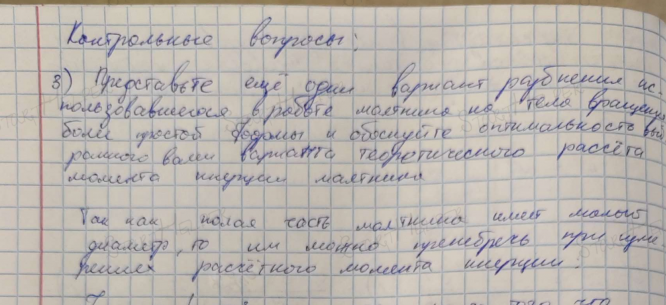 Контрольные вопросы:
3) Представьте ещё один вариант разбиения ис-
пользовавшегося в работе маятника на тела вращения
более простой формы и обоснуйте оптимальность выб
ранного вами варианта теоретического рассёта
момента инерции маятника
Так как полая часть маятника имеет малый
диаметр, то им можно пренебречь при изме
рениях расчётного момента инерции.